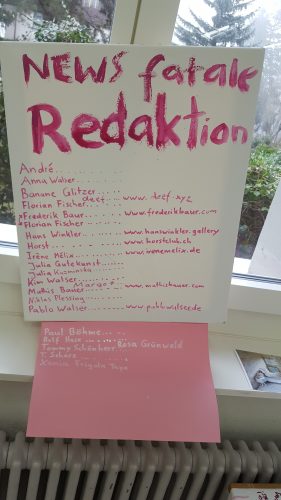 NEWS fatale
Redaktion
André..............
Anna Walser...........
Banane Glitzer........
Florian Fischer deef... www. deef.xyz
*Frederik Baur..... www.frederikbaur.com
*Florian Fischer......
Hans Winkler..... www.hanswinkler.gallery
Horst........ www.horstclub.ch
Irène Mélix...... www.irenemelix.de
Julia Gutekunst...
Julia Kuzminska
Kim Walser Margot
Mathis Bauer...... www.mathisbauer.com
Niklas Plessing
Pablo Walser........ www.pablowalser.de
Paul Böhme.....
Rolf Hase
Tommy Schönherr... Rosa Grünwald
T. Scherz
Xenia Frigola Topo